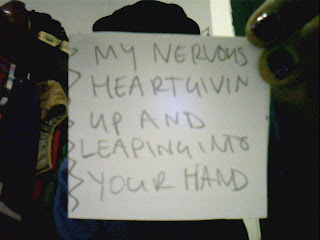 MY NERVOUS
HEARTGIVIN
UP AND
LEAPING INTO
YOUR HAND